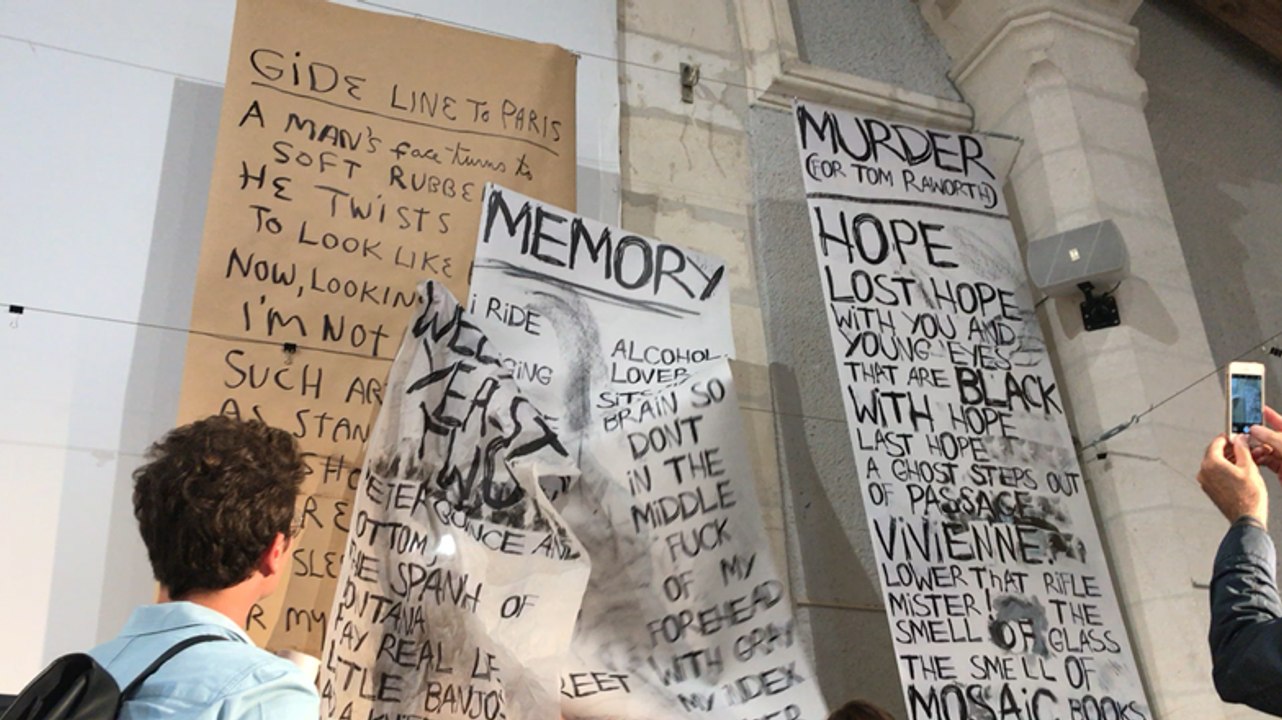 GiDE LINE To PARIS
A MAN'S face turns to
SOFT RUBBE
HE TWISTS
TO LOOK LIKE
NOW, LOOKIN
I'M NOT
SUCH AR
AS STAN
SHO
RE
SLE
R my
MEMORY
i RiDE
GING
ALCOHOL
LOVER
SITS
BRAIN SO
DONT
iN THE
MiDDLE
FUCK
OF MY
FOREHEAD
WITH GRAY
MY INDEX
REET
WEL
YEAST
TWO
PETER BOUNCE AND
OTTOM,
THE SPANH OF
ONTANA
PAY REAL LF
LITTLE BANJO
MURDER
(FOR TOM RAWORTH)
HOPE
LOST HOPE
WiTH YOU AND
YOUNG EYES
THAT ARE BLACK
WiTH HOPE
LAST HOPE
A GHOST STEPS OUT
OF PASSAGE
ViViENNE.
LOWER ThAT RiFLE
MiSTER! THE
SMELL OF GLASS
THE SMELL OF
MOSAiC BOOKS